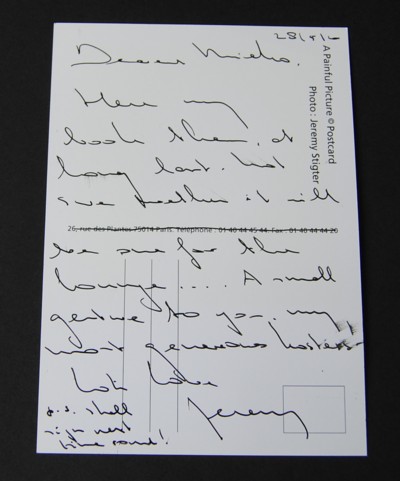 28/5/
Dear
Here my
book then, at
long last. Not
sure whether it will
26, rue des Plantes 75014 Paris. Telephone : 01 40 44 45 44. Fax : 01 40 44 44 20
be one for the
lounge.... A small
gesture to you, my
most generous hostess
Lots Love
Jeremy
p.s. shall
sign next
time round!
A Painful Picture © Postcard
Photo : Jeremy Stigter